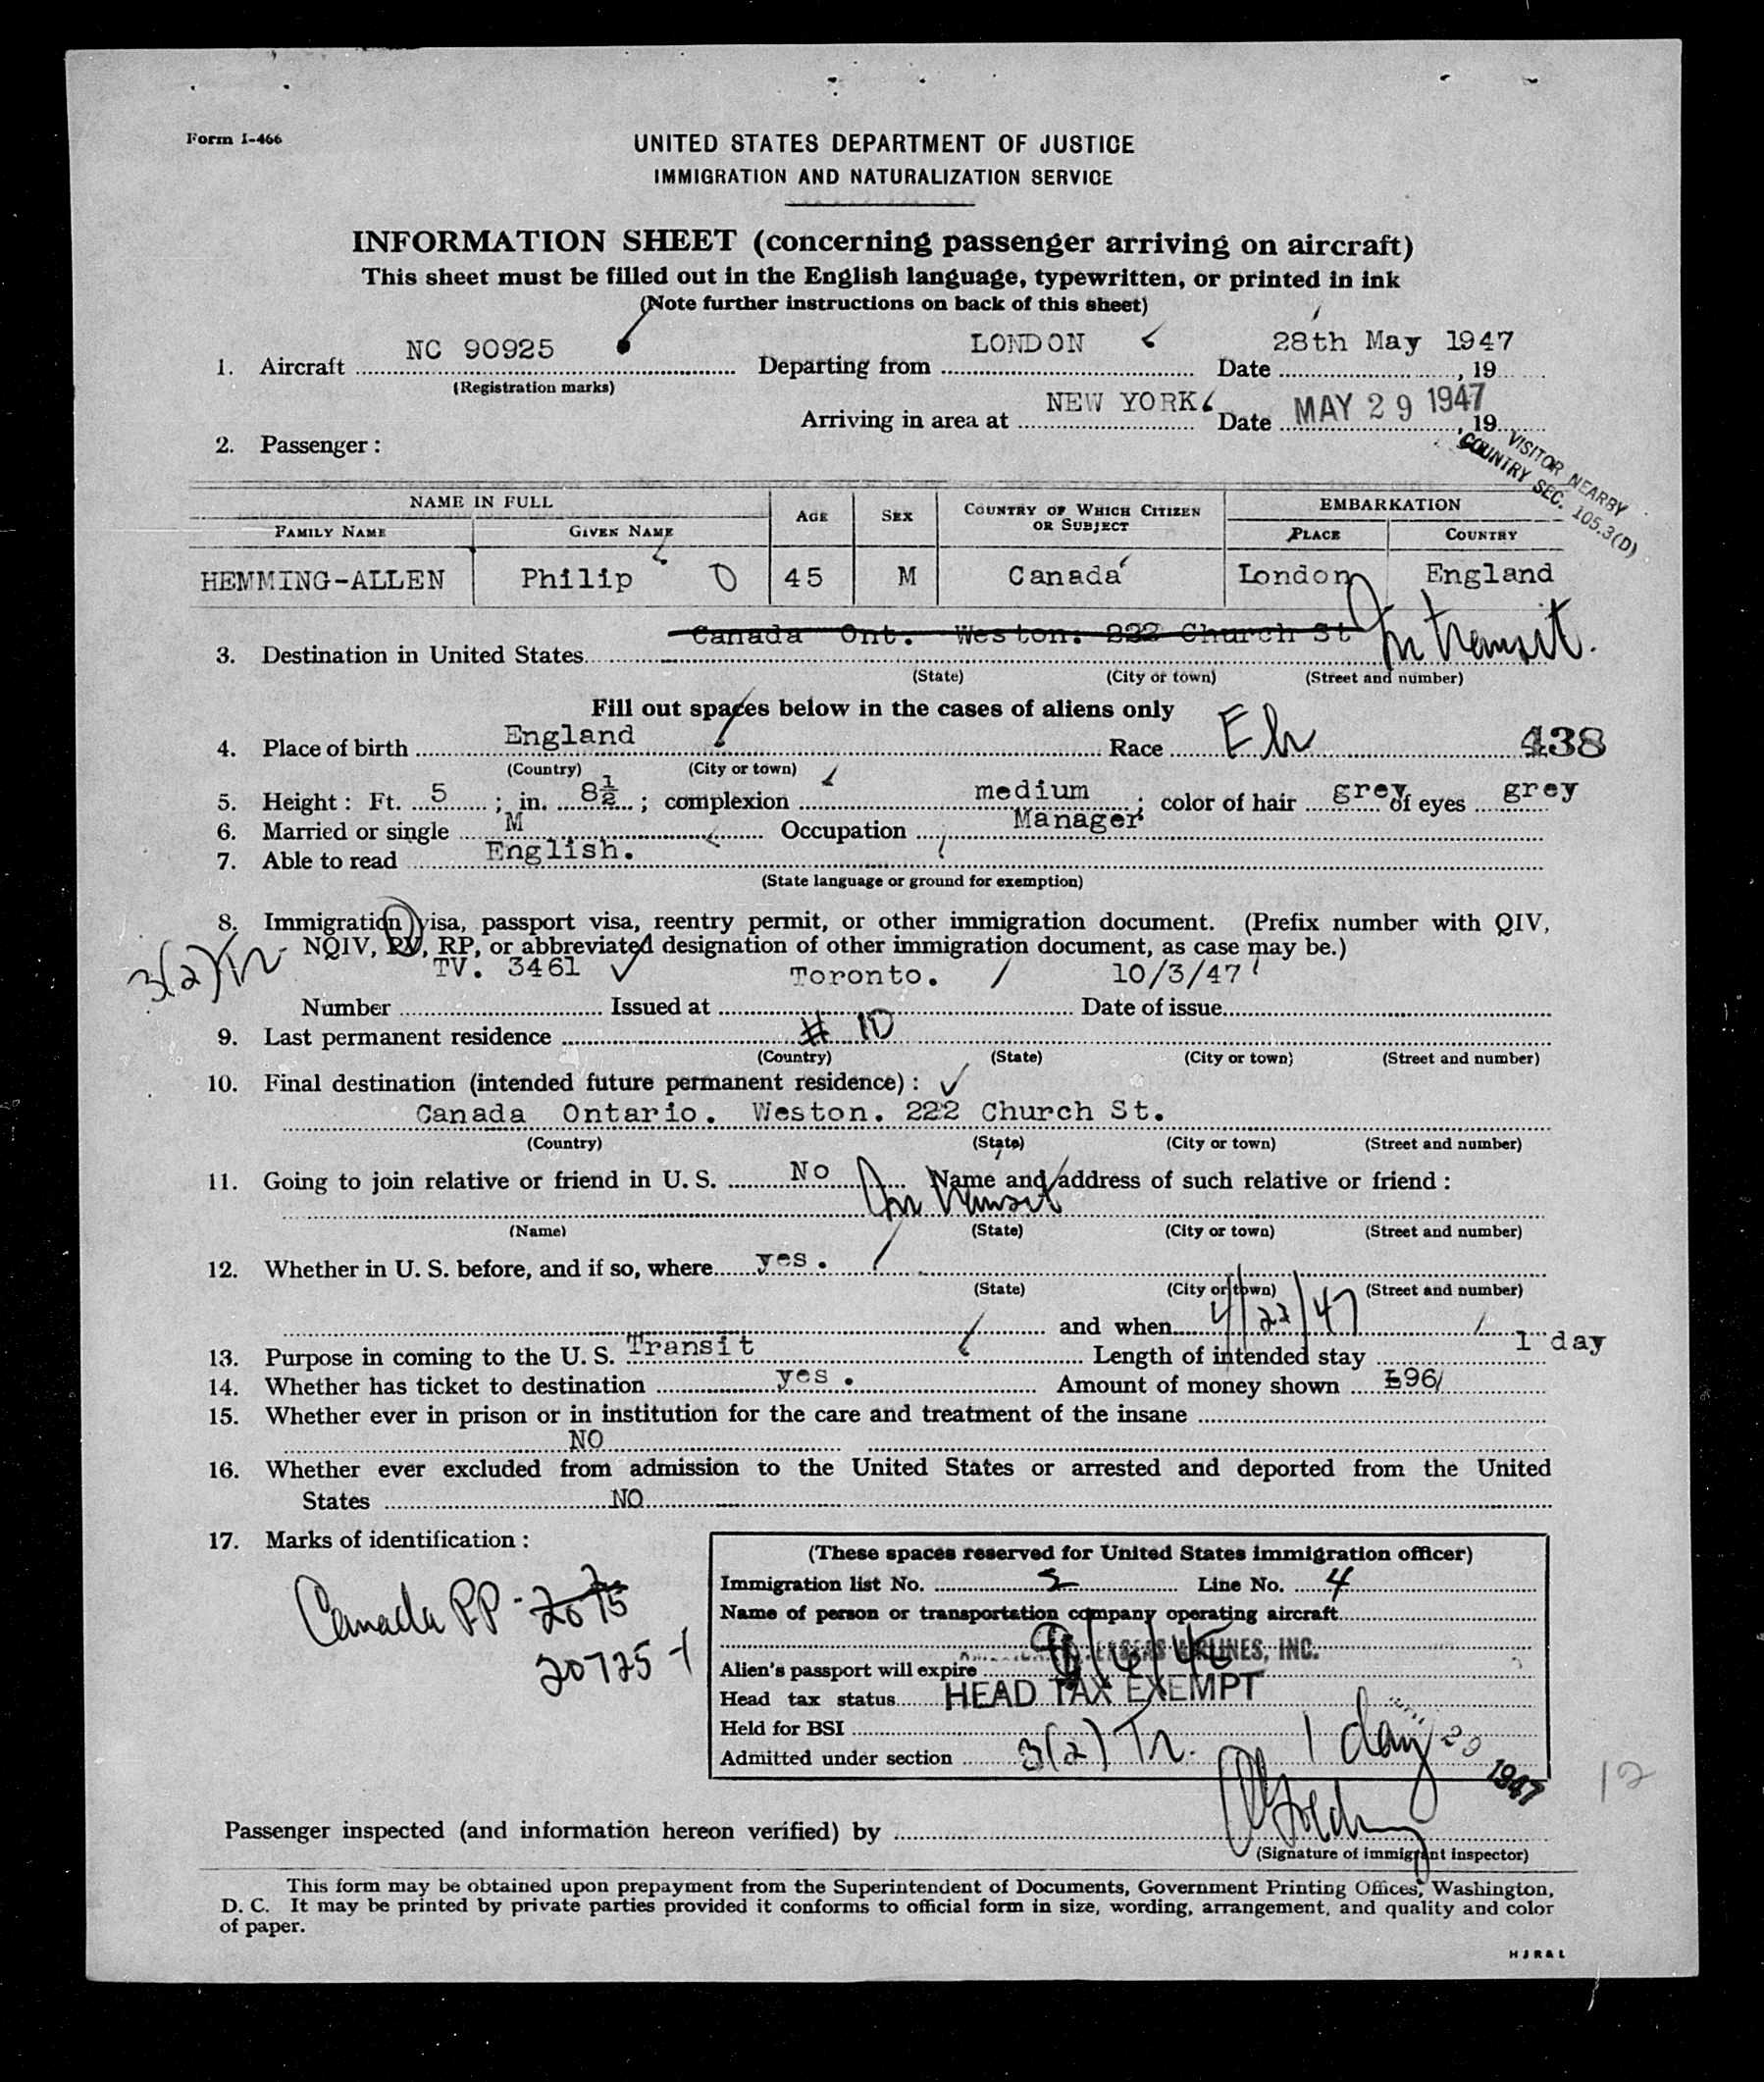 Form I-466
UNITED STATES DEPARTMENT OF JUSTICE
IMMIGRATION AND NATURALIZATION SERVICE
INFORMATION SHEET (concerning passenger arriving on aircraft)
This sheet must be filled out in the English language, typewritten, or printed in ink
(Note further instructions on back of this sheet)
1. Aircraft NC 90925 Departing from LONDON Date 28th May 1947, 19
(Registration marks)
Arriving in area at NEW YORK Date MAY 29 1947, 19
2. Passenger:
VISITOR NEARBY
COUNTRY SEC. 105.3(D)
NAME IN FULL AGE SEX COUNTRY OF WHICH CITIZEN OR SUBJECT EMBARKATION
FAMILY NAME GIVEN NAME PLACE COUNTRY
HEMMING-ALLEN Philip O 45 M Canada London England
3. Destination in United States Canada Ont. Weston. 222 Church St In transit.
(State) (City or town) (Street and number)
Fill out spaces below in the cases of aliens only
4. Place of birth England Race 438
(Country) (City or town)
5. Height: Ft. 5; in. 8½; complexion medium; color of hair grey of eyes grey
6. Married or single M Occupation Manager
7. Able to read English.
(State language or ground for exemption)
8. Immigration visa, passport visa, reentry permit, or other immigration document. (Prefix number with QIV,
3(2)Tr - NQIV, PV, RP, or abbreviated designation of other immigration document, as case may be.)
TV. 3461 Toronto. 10/3/47
Number Issued at Date of issue
9. Last permanent residence # 10
(Country) (State) (City or town) (Street and number)
10. Final destination (intended future permanent residence):
Canada Ontario. Weston. 222 Church St.
(Country) (State) (City or town) (Street and number)
11. Going to join relative or friend in U. S. No Name and address of such relative or friend:
In transit
(Name) (State) (City or town) (Street and number)
12. Whether in U. S. before, and if so, where yes.
(State) (City or town) (Street and number)
and when 4/22/47
13. Purpose in coming to the U. S. Transit Length of intended stay 1 day
14. Whether has ticket to destination yes. Amount of money shown £96/
15. Whether ever in prison or in institution for the care and treatment of the insane
NO
16. Whether ever excluded from admission to the United States or arrested and deported from the United
States NO
17. Marks of identification:
Canada PP - 2075
20725-1
(These spaces reserved for United States immigration officer)
Immigration list No. 2 Line No. 4
Name of person or transportation company operating aircraft
AIRLINES, INC.
Alien's passport will expire
Head tax status HEAD TAX EXEMPT
Held for BSI
Admitted under section 3(2) Tr. 1 day
1947
12
Passenger inspected (and information hereon verified) by
(Signature of immigrant inspector)
This form may be obtained upon prepayment from the Superintendent of Documents, Government Printing Offices, Washington,
D. C. It may be printed by private parties provided it conforms to official form in size, wording, arrangement, and quality and color
of paper.
HJR&L